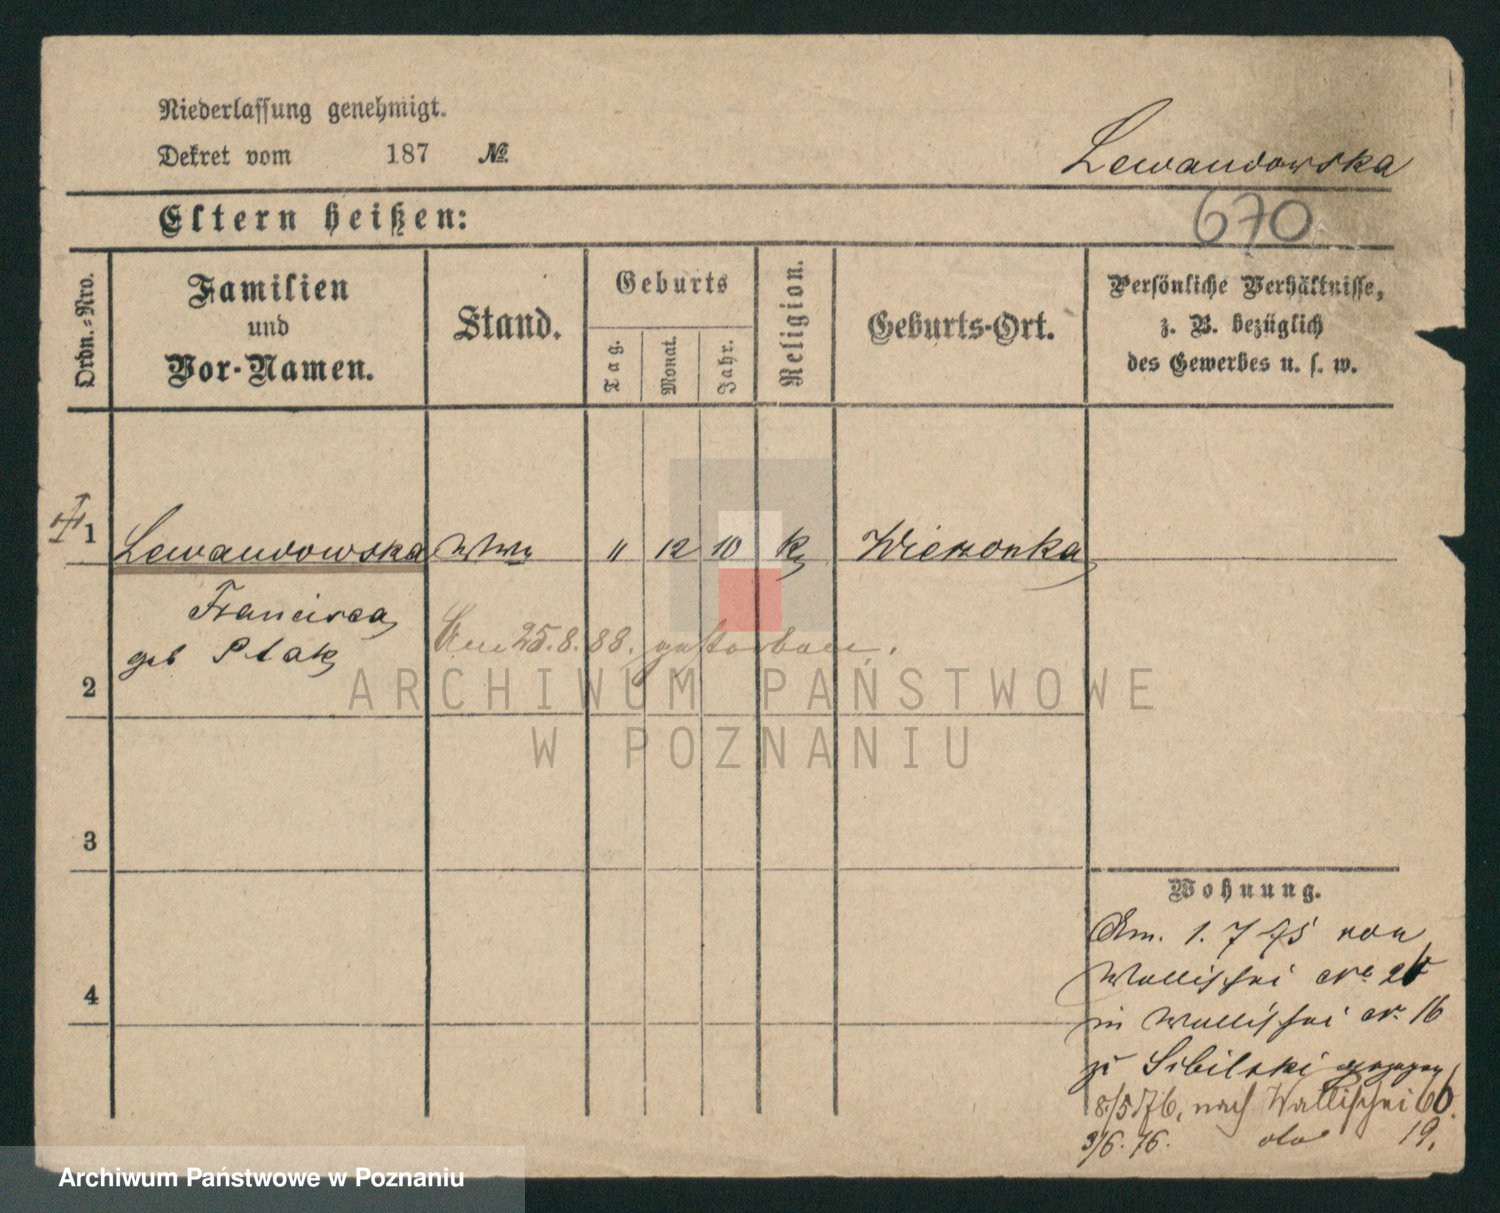 Niederlassung genehmigt.
Dekret vom 187 №
Lewandowska
Eltern heißen:
670
Ordn.-Nro.
Familien
und
Vor-Namen.
Stand.
Geburts
Tag.
Monat.
Jahr.
Religion.
Geburts-Ort.
Persönliche Verhältnisse,
z. B. bezüglich
des Gewerbes u. s. w.
1 Lewandowska Wwe " 12 10 k Wierzonka
Francisca
geb Ptak
Am 25.8.88. gestorben.
2
3
4
Wohnung.
Am. 1. 7 75 von
Wallischei No 26
in Wallischei No 16
zu Sibilski gezogen
8/5 76, nach Wallischei 66.
3/6. 76. dto 19.
ARCHIWUM PAŃSTWOWE
W POZNANIU
Archiwum Państwowe w Poznaniu